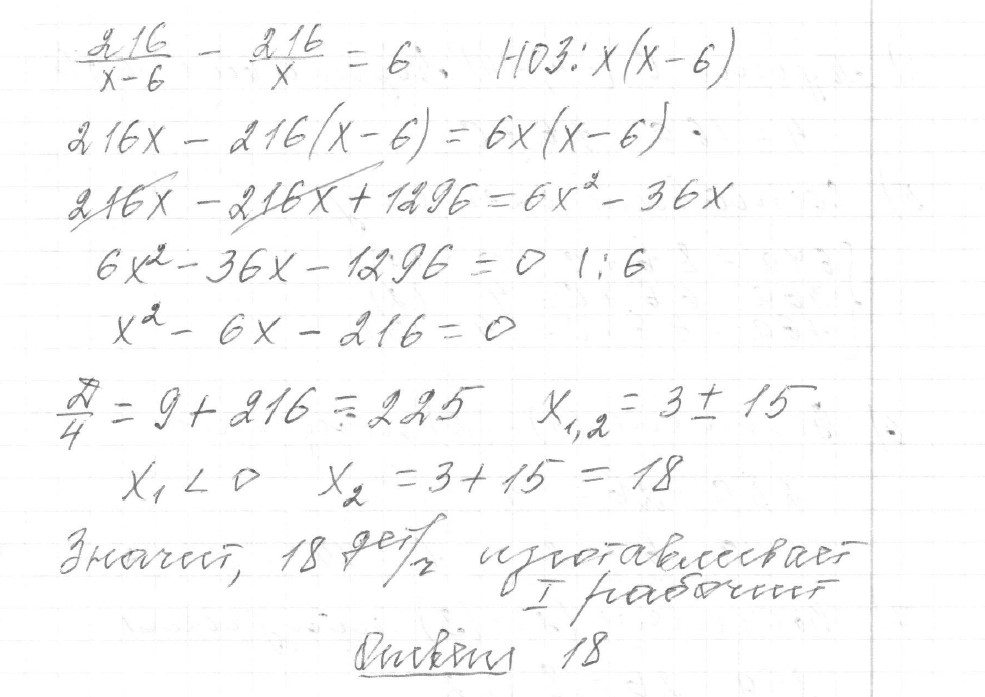 216/(x-6) - 216/x = 6. НОЗ: x(x-6)
216x - 216(x-6) = 6x(x-6).
216x - 216x + 1296 = 6x² - 36x
6x² - 36x - 1296 = 0 |:6
x² - 6x - 216 = 0
D/4 = 9 + 216 = 225 x₁,₂ = 3 ± 15
x₁ < 0 x₂ = 3 + 15 = 18
Значит, 18 дет/ч изготавливает
I рабочий
Ответ 18